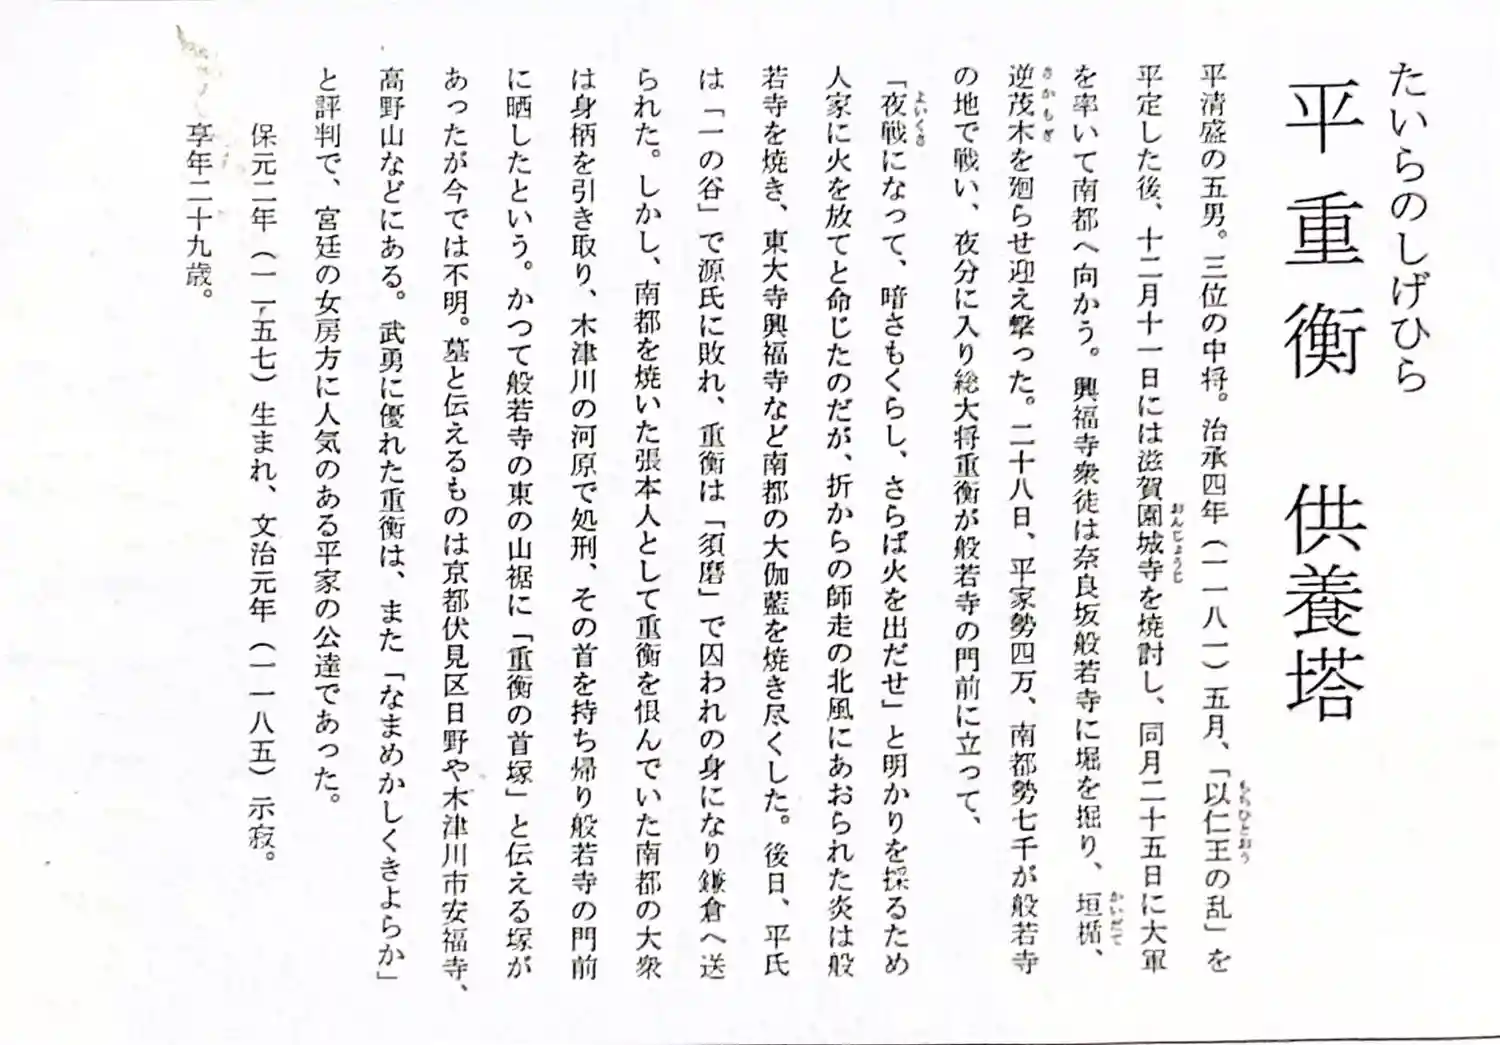 たいらのしげひら
平重衡 供養塔
平清盛の五男。三位の中将。治承四年（一一八一）五月、「以仁王の乱」を
もちひとおう
平定した後、十二月十一日には滋賀園城寺を焼討し、同月二十五日に大軍
おんじょうじ
を率いて南都へ向かう。興福寺衆徒は奈良坂般若寺に堀を掘り、垣楯、
かいだて
逆茂木を廻らせ迎え撃った。二十八日、平家勢四万、南都勢七千が般若寺
さかもぎ
の地で戦い、夜分に入り総大将重衡が般若寺の門前に立って、
「夜戦になって、暗さもくらし、さらば火を出だせ」と明かりを採るため
よいくさ
人家に火を放てと命じたのだが、折からの師走の北風にあおられた炎は般
若寺を焼き、東大寺興福寺など南都の大伽藍を焼き尽くした。後日、平氏
は「一の谷」で源氏に敗れ、重衡は「須磨」で囚われの身になり鎌倉へ送
られた。しかし、南都を焼いた張本人として重衡を恨んでいた南都の大衆
は身柄を引き取り、木津川の河原で処刑、その首を持ち帰り般若寺の門前
に晒したという。かつて般若寺の東の山裾に「重衡の首塚」と伝える塚が
あったが今では不明。墓と伝えるものは京都伏見区日野や木津川市安福寺、
高野山などにある。武勇に優れた重衡は、また「なまめかしくきよらか」
と評判で、宮廷の女房方に人気のある平家の公達であった。
保元二年（一一五七）生まれ、文治元年（一一八五）示寂。
享年二十九歳。